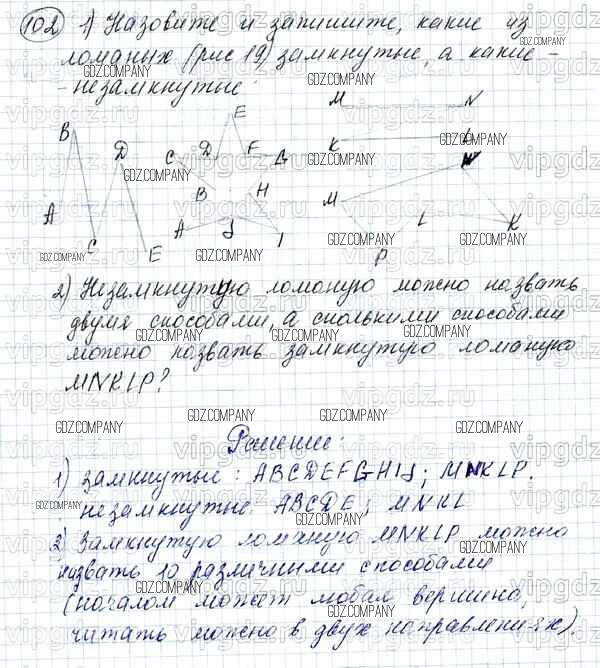 102 1) Назовите и запишите, какие из
ломаных (рис 19) замкнутые, а какие -
- незамкнутые:
M N
E
B D C D F G K L
N
A B H M
A J I L K
C E P
2) Незамкнутую ломаную можно назвать
двумя способами, а сколькими способами
можно назвать замкнутую ломаную
MNKLP?
Решение:
1) замкнутые: ABCDEFGHIJ; MNKLP.
незамкнутые: ABCDE; MNKL
2) Замкнутую ломаную MNKLP можно
назвать 10 различными способами
(началом может любая вершина,
читать можно в двух направлениях).